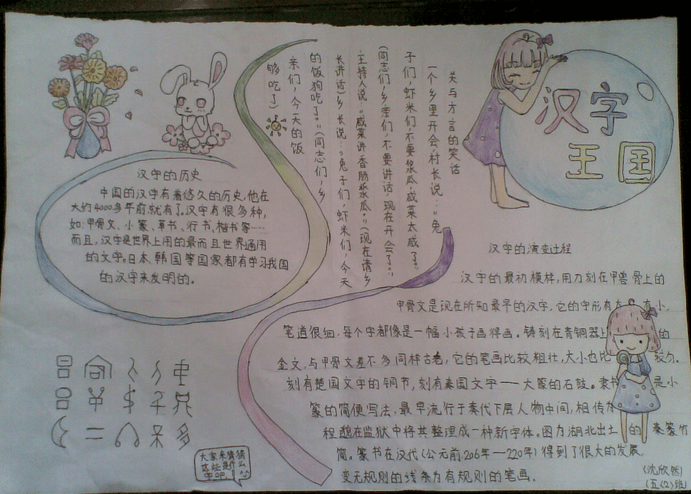 汉字
王国
关与方言的笑话
一个乡里开会,村长说:“兔
子们,虾米们,不要浆瓜,咸菜太咸了。”
(同志们,乡亲们,不要讲话,现在开会了。)
主持人说:“咸菜 香肠浆瓜。”(现在请乡
长讲话)乡长说:“兔子们,虾米们,今天
的饭狗吃了。”(同志们,乡
亲们,今天的饭
够吃了)
汉字的历史
中国的汉字有着悠久的历史,他在
大约4000多年前就有了,汉字有很多种,
如:甲骨文、小篆、草书、行书、楷书等…
而且,汉字是世界上用的最而且世界通用
的文字,日本、韩国等国家都有学习我国
的汉字来发明的。
汉字的演变过程
汉字的最初模样,用刀刻在甲兽骨上的
甲骨文是现在所知最早的汉字,它的字形有 有小,
笔道很细,每个字都像是一幅小孩子画得画。铸刻在青铜器上 的
金文,与甲骨文差不多同样古老,它的笔画比较粗壮,大小也比较
刻有楚国文字的铜节,刻有秦国文字——大篆的石鼓。隶书 是小
篆的简便写法,最早流行于秦代下层人物中间,相传
程邈在监狱中将其整理成一种新字体。图为湖北出土的 秦篆竹
简。篆书在汉代(公元前206年—220年)得到了很大的发展,
变无规则的线条为有规则的笔画。
大家来猜猜
这些是什么
字吧
(沈欣然)
(五(2)班)